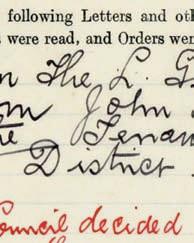 following Letters and oth
s were read, and Orders wer
n The L. G
om John
The Tenan
District
Council decided